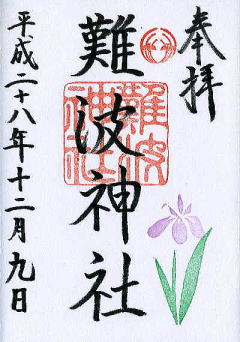 奉拝
難波神社
難波
神社
平成二十八年十二月九日